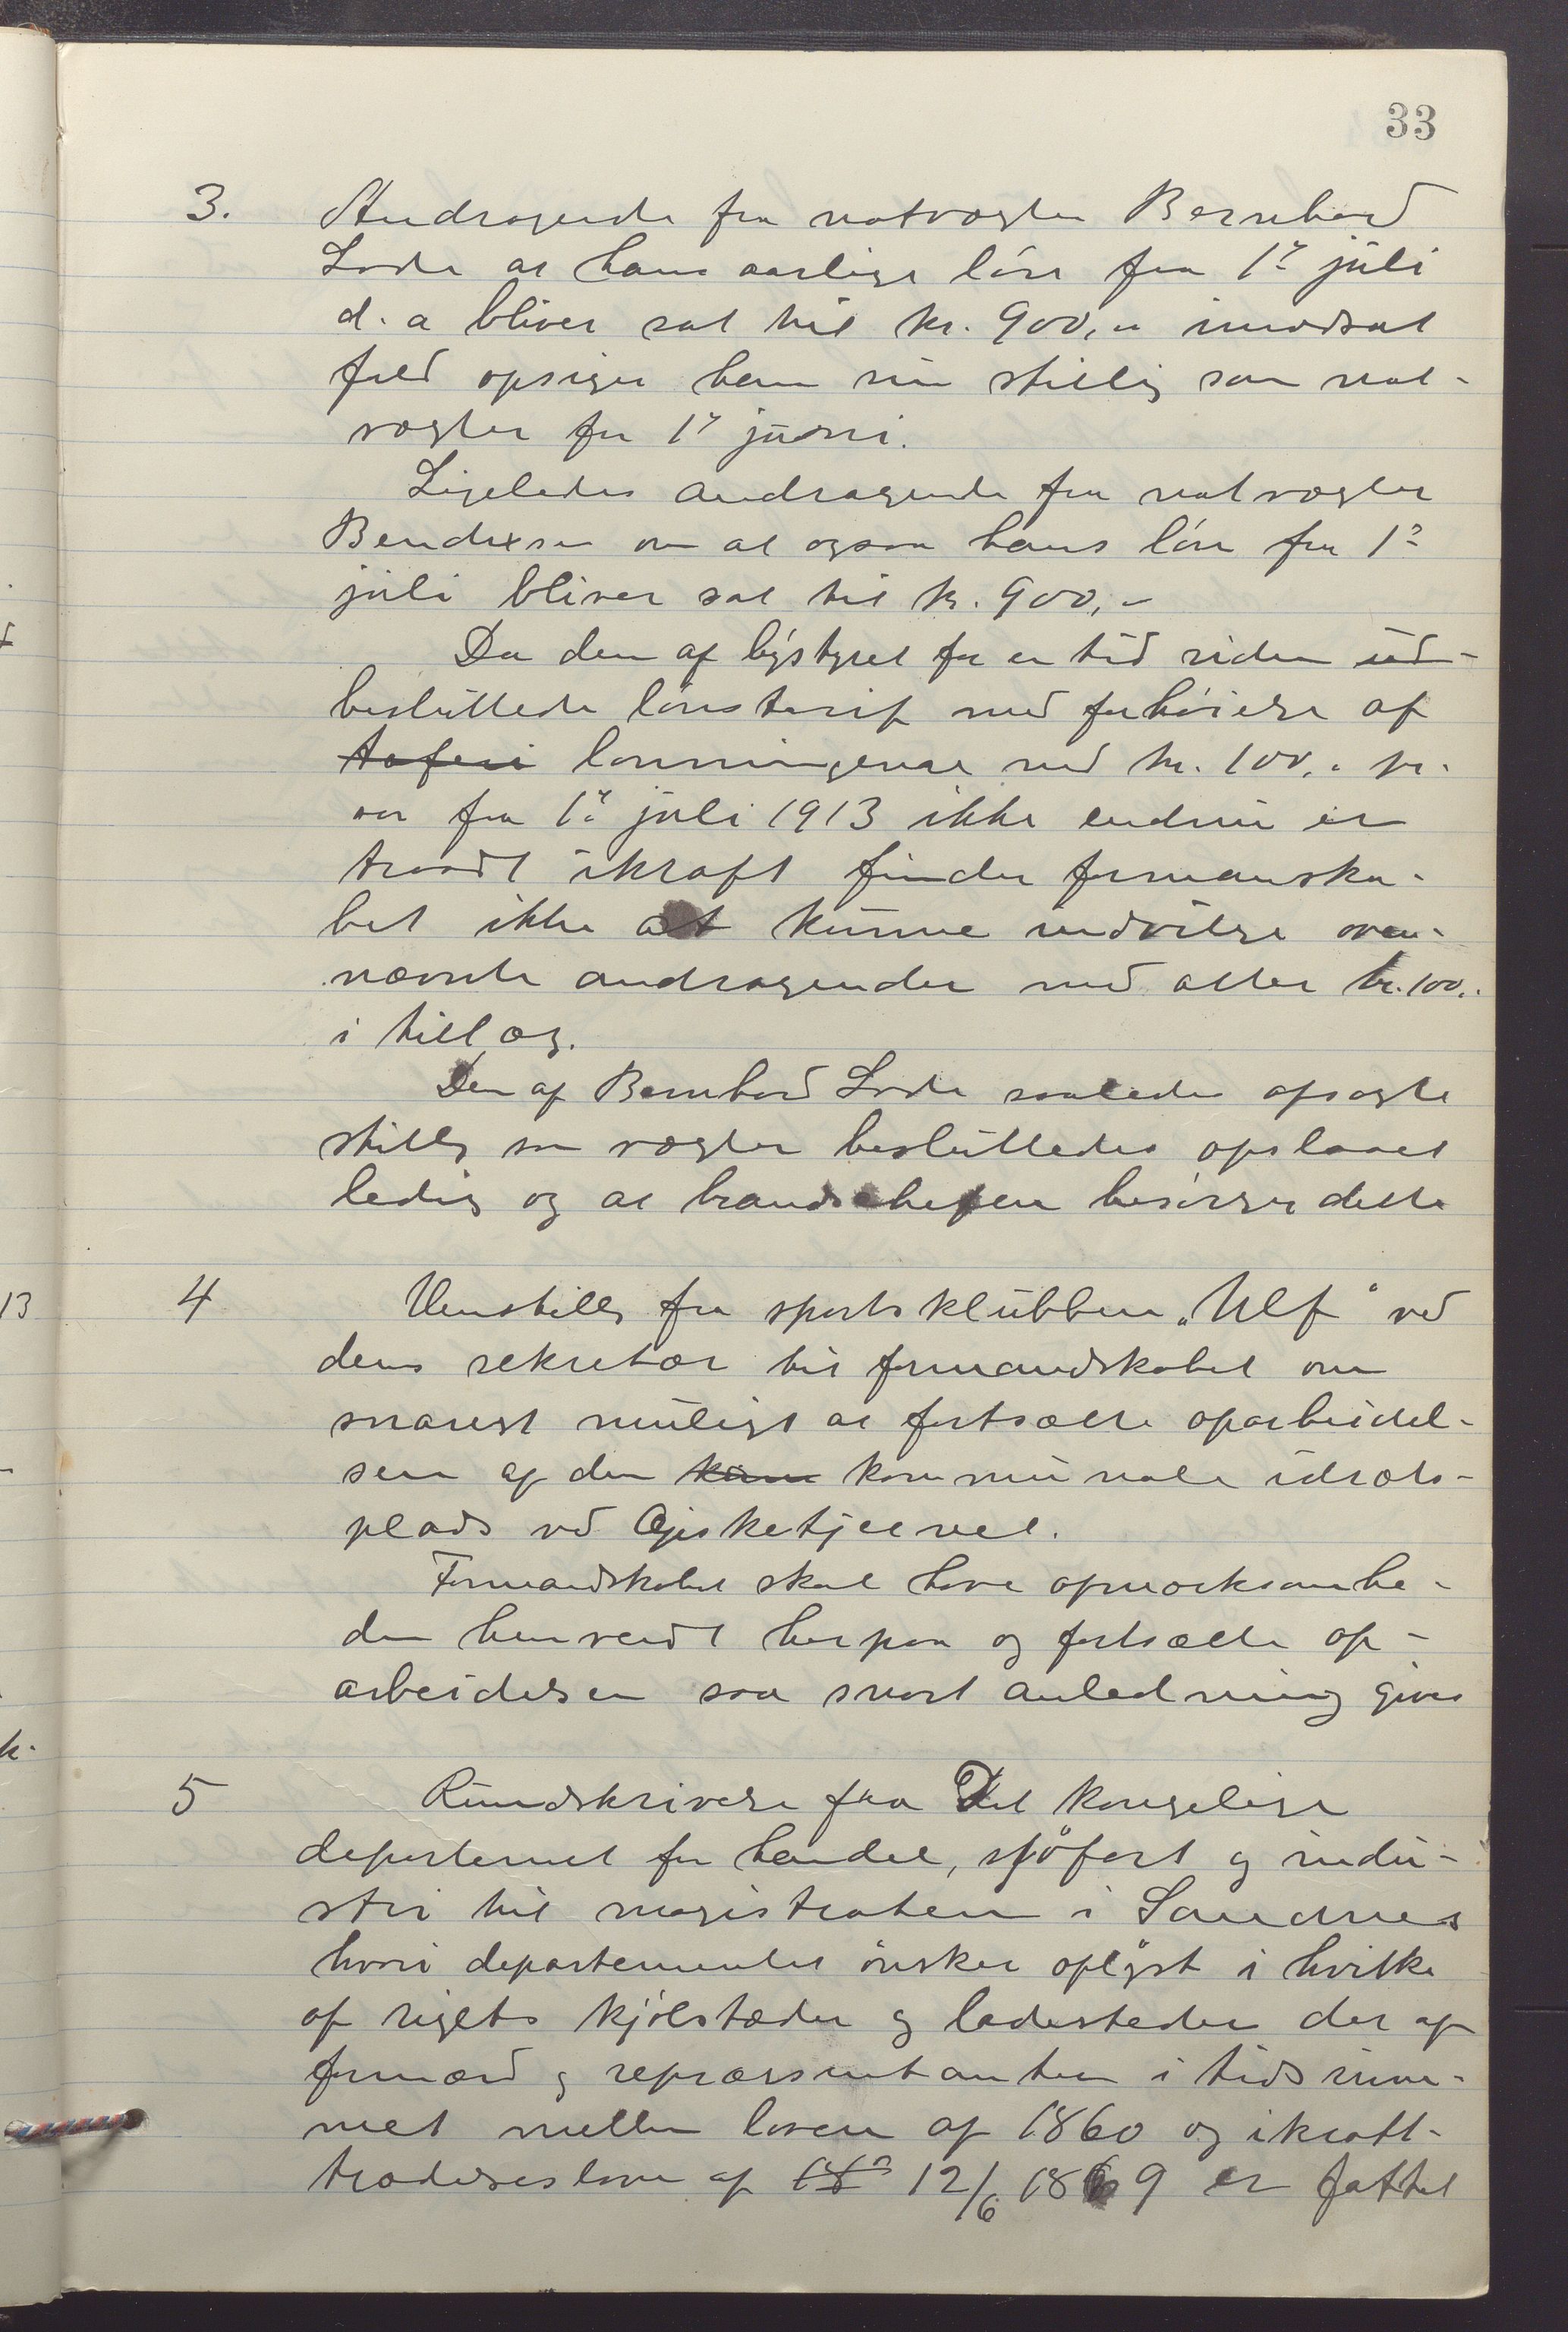 33
3. Andragende fra natvægter Bernhard
Lode at hans aarlige løn fra 1ste juli
d. a bliver sat til kr. 900,- imodsat
fald opsiger han sin stilling som nat-
vægter fra 1ste juni.
Ligeledes andragende fra natvægter
Bendixen om at ogsaa hans løn fra 1ste
juli bliver sat til kr. 900,-
Da den af bystyret for en tid siden ud-
besluttede lønstarif med forhøielse af
lønningerne med kr. 100,- pr.
aar fra 1ste juli 1913 ikke endnu er
traadt ikraft finder formanska-
bet ikke at kunne indvilge oven-
nævnte andragender med atter kr. 100,-
i tillæg.
Den af Bernhard Lode saaledes opsagte
stilling som vægter besluttedes opslaaet
ledig og at brandchefen besørger dette
4 Henstilling fra sportsklubben „Ulf“ ved
dens sekretær til formandskabet om
snarest muligt at fortsætte oparbeidel-
sen af den kommunale idræts-
plads ved Gisketjernet.
Formandskabet skal have opmærksomhe-
den henvendt herpaa og fortsætte op-
arbeidelsen saa snart anledning gives
5 Rundskrivelse fra Det kongelige
departemet for handel, sjøfart og indu-
stri til magistraten i Sandnes
hvori departementet ønsker oplyst i hvilke
af rigets kjøbstæder og ladesteder der af
formænd og repræsentanter i tidsrum-
met mellem loven af 1860 og ikraft-
trædelsesloven af 12/6 1869 er fattet
13
k.